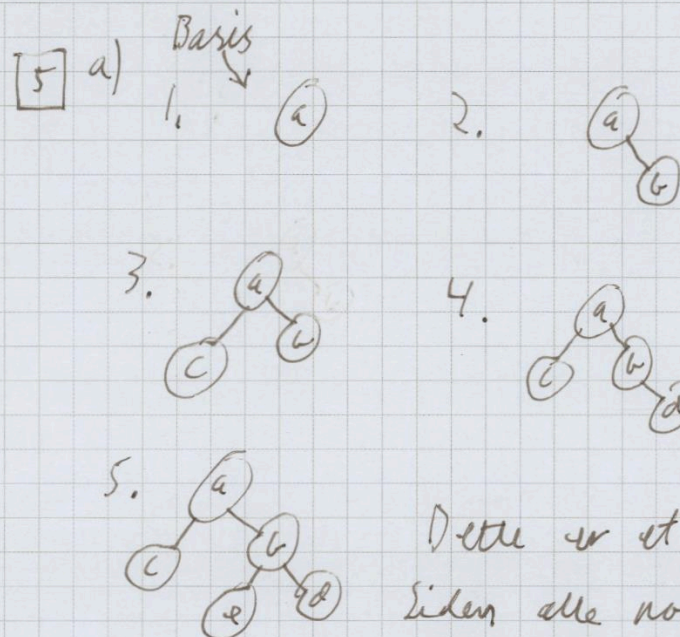 5 a) Basis
1. a 2. a
b
3. a 4. a
c b c b
d
5. a
c b Dette er et
e d Siden alle no